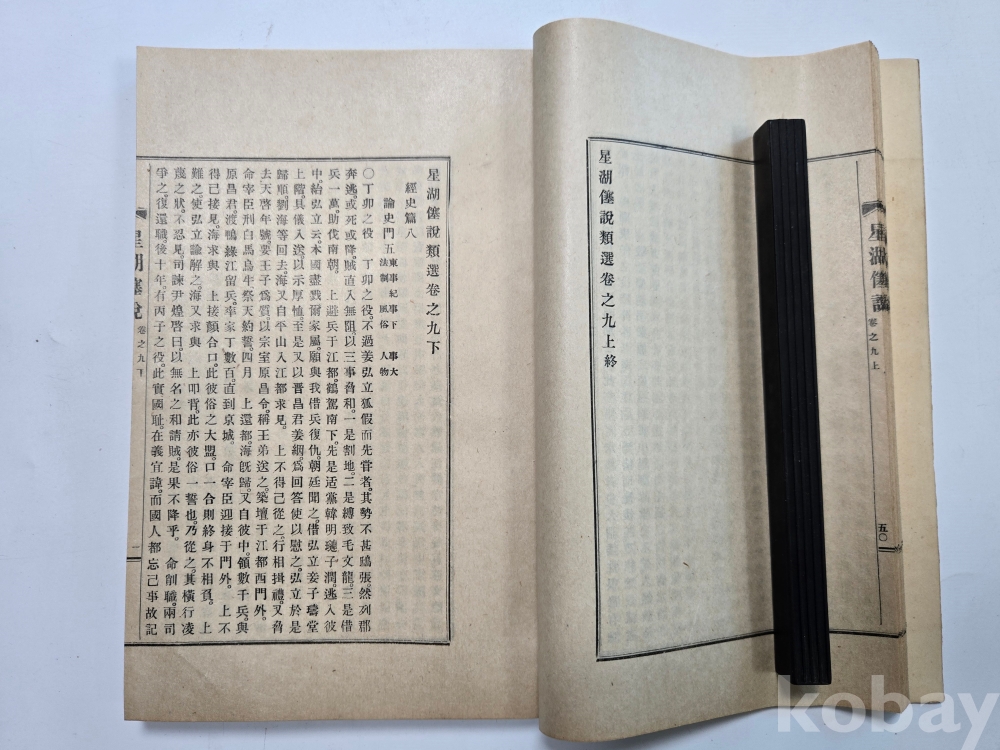 星湖僿說
卷之九上
五〇
星湖僿說類選卷之九上終
星湖僿說類選卷之九下
經史篇八
論史門五 東事紀事下 事大
法制 風俗 人物
〇丁卯之役 丁卯之役。不過姜弘立狐假而先嘗者。其勢不甚鴟張。然列郡
奔逃。或死或降。賊直入無阻。以三事脅和。一是割地。二是縛致毛文龍。三是借
兵一萬。助伐南朝。 上避兵于江都。鶴駕南下。先是适黨韓明璉子潤。逃入彼
中。紿弘立云。本國盡戮爾家屬。願與我借兵復仇。朝廷聞之。借弘立妾子璹堂
上階。具儀入送。以示厚恤。至是又以晋昌君姜絪。爲回答使以慰之。弘立於是
歸順。劉海等回去。海又自平山入江都求見。 上不得已從之。行相揖禮。又脅
去天啓年號。要王子爲質。以宗室原昌令。稱王弟送之。築壇于江都西門外。
命宰臣刑白馬烏牛祭天約誓。四月 上還都。海旣歸。又自彼中。領數千兵。與
原昌君。渡鴨綠江留兵。率家丁數百。直到京城。 命宰臣迎接于門外。 上不
得已接見。海求與 上接顏合口。此彼俗之大盟。口一合則終身不相負。 上
難之。使弘立論解之。海又求與 上叩背。此亦彼俗一誓也。乃從之。其橫行凌
蔑之狀。不忍見。司諫尹煌啓曰。以無名之和請賊。是果不降乎。 命削職。兩司
爭之。復還職。後十年。有丙子之役。此實國耻。在義宜諱。而國人都忘己事故記
星湖僿說
卷之九下
kobay